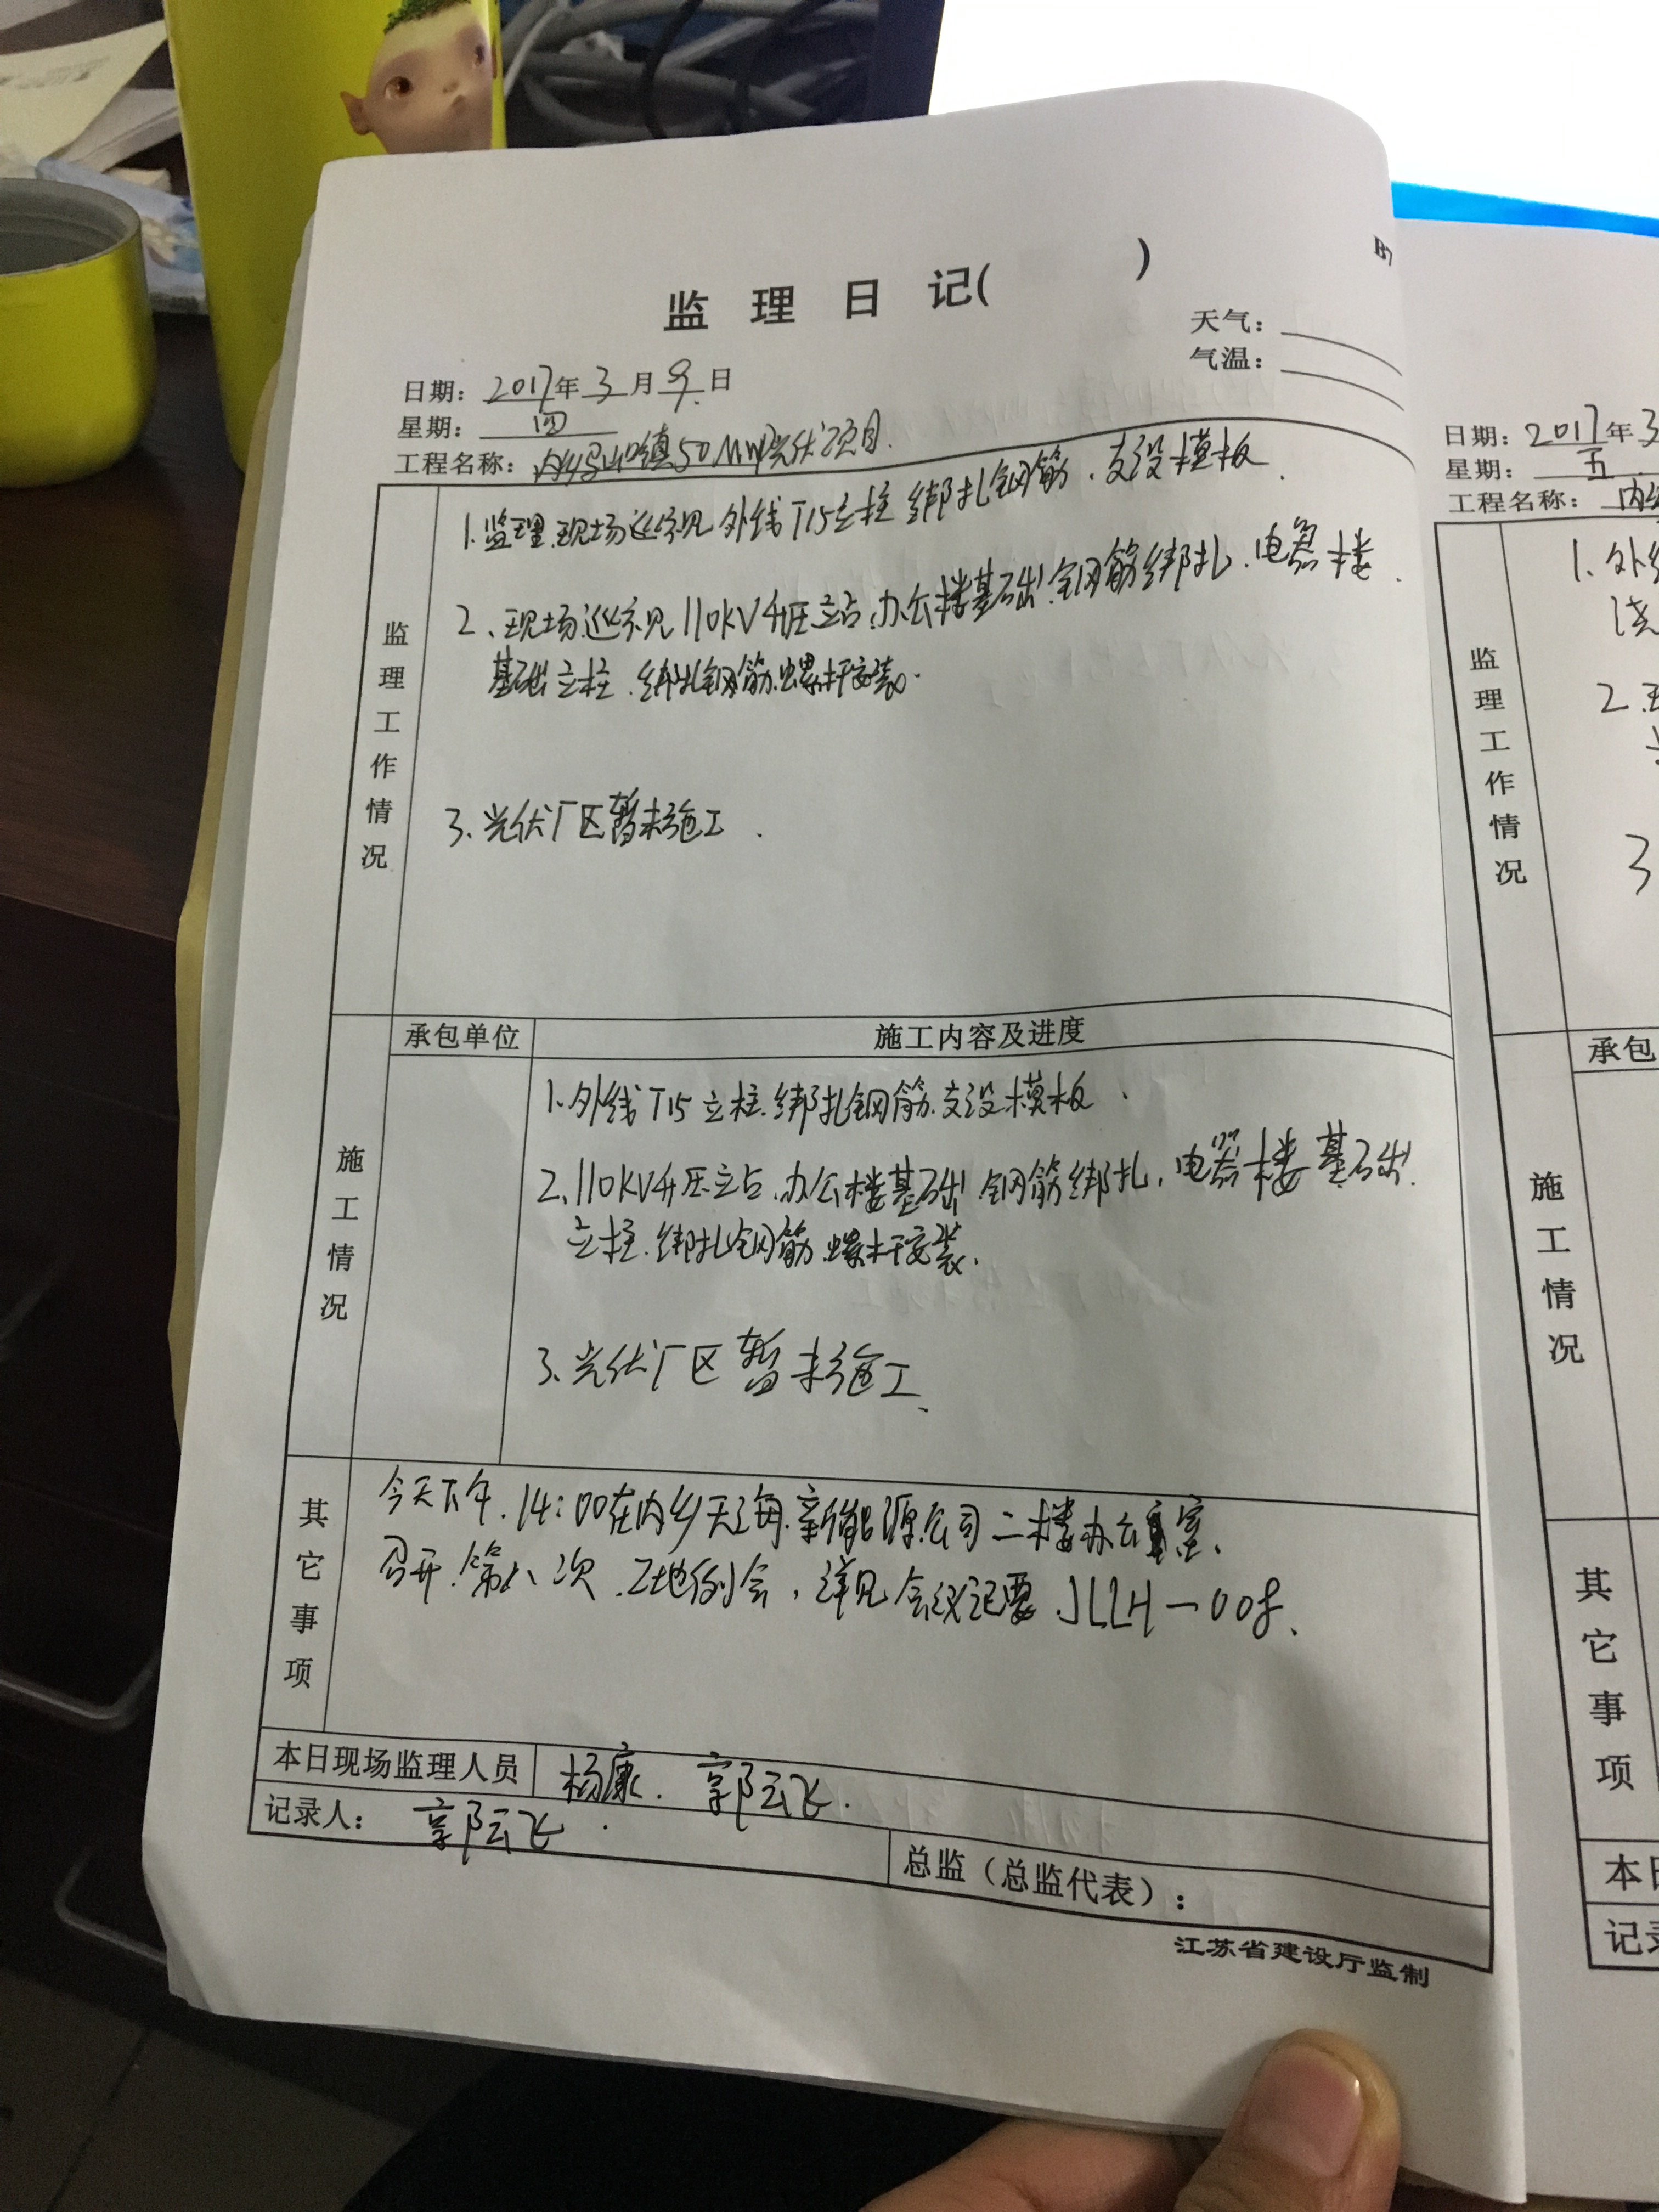 监理日记( )
B7
天气：
气温：
日期：2017年3月9日
星期：四
工程名称：内乡马山口镇50MWp光伏项目.
监理工作情况
1.监理现场巡视见外线T15立柱绑扎钢筋、支设模板.
2、现场巡视见110KV升压立占、办公楼基础钢筋绑扎、电器楼
基础立柱、绑扎钢筋、螺杆安装.
3.光伏厂区暂未施工.
承包单位
施工内容及进度
施工情况
1.外线T15立柱.绑扎钢筋.支设模板.
2、110KV升压立占、办公楼基础钢筋绑扎，电器楼基础
立柱.绑扎钢筋.螺杆安装.
3、光伏厂区暂未施工、
其它事项
今天下午.14:00在内乡天海新能源公司二楼办公室、
召开.第八次.工地例会，详见会议记要.JLLH-008、
本日现场监理人员
杨康. 郭云飞.
记录人：郭云飞.
总监（总监代表）：
江苏省建设厅监制
日期：2017年3
星期：五
工程名称：内
监理工作情况
1.外
浇
2.
3
承包
施工情况
其它事项
本
记